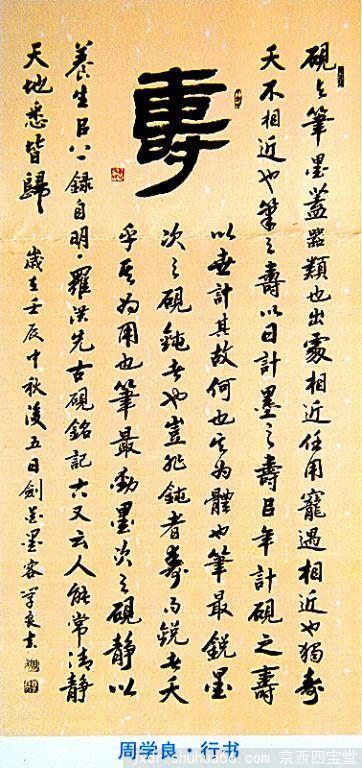 壽
硯與筆墨蓋器類也出處相近任用寵遇相近也獨壽
夭不相近也筆之壽以日計墨之壽以年計硯之壽
以世計其故何也其為體也筆最銳墨
次之硯鈍者也豈非鈍者壽而銳者夭
乎其為用也筆最動墨次之硯靜以
養生 錄自明·羅洪先古硯銘記 又云人能常清靜
天地悉皆歸 歲在壬辰中秋後五日劍 墨客學良書
周学良·行书
xdf-shuhuabao.com 京西四宝堂